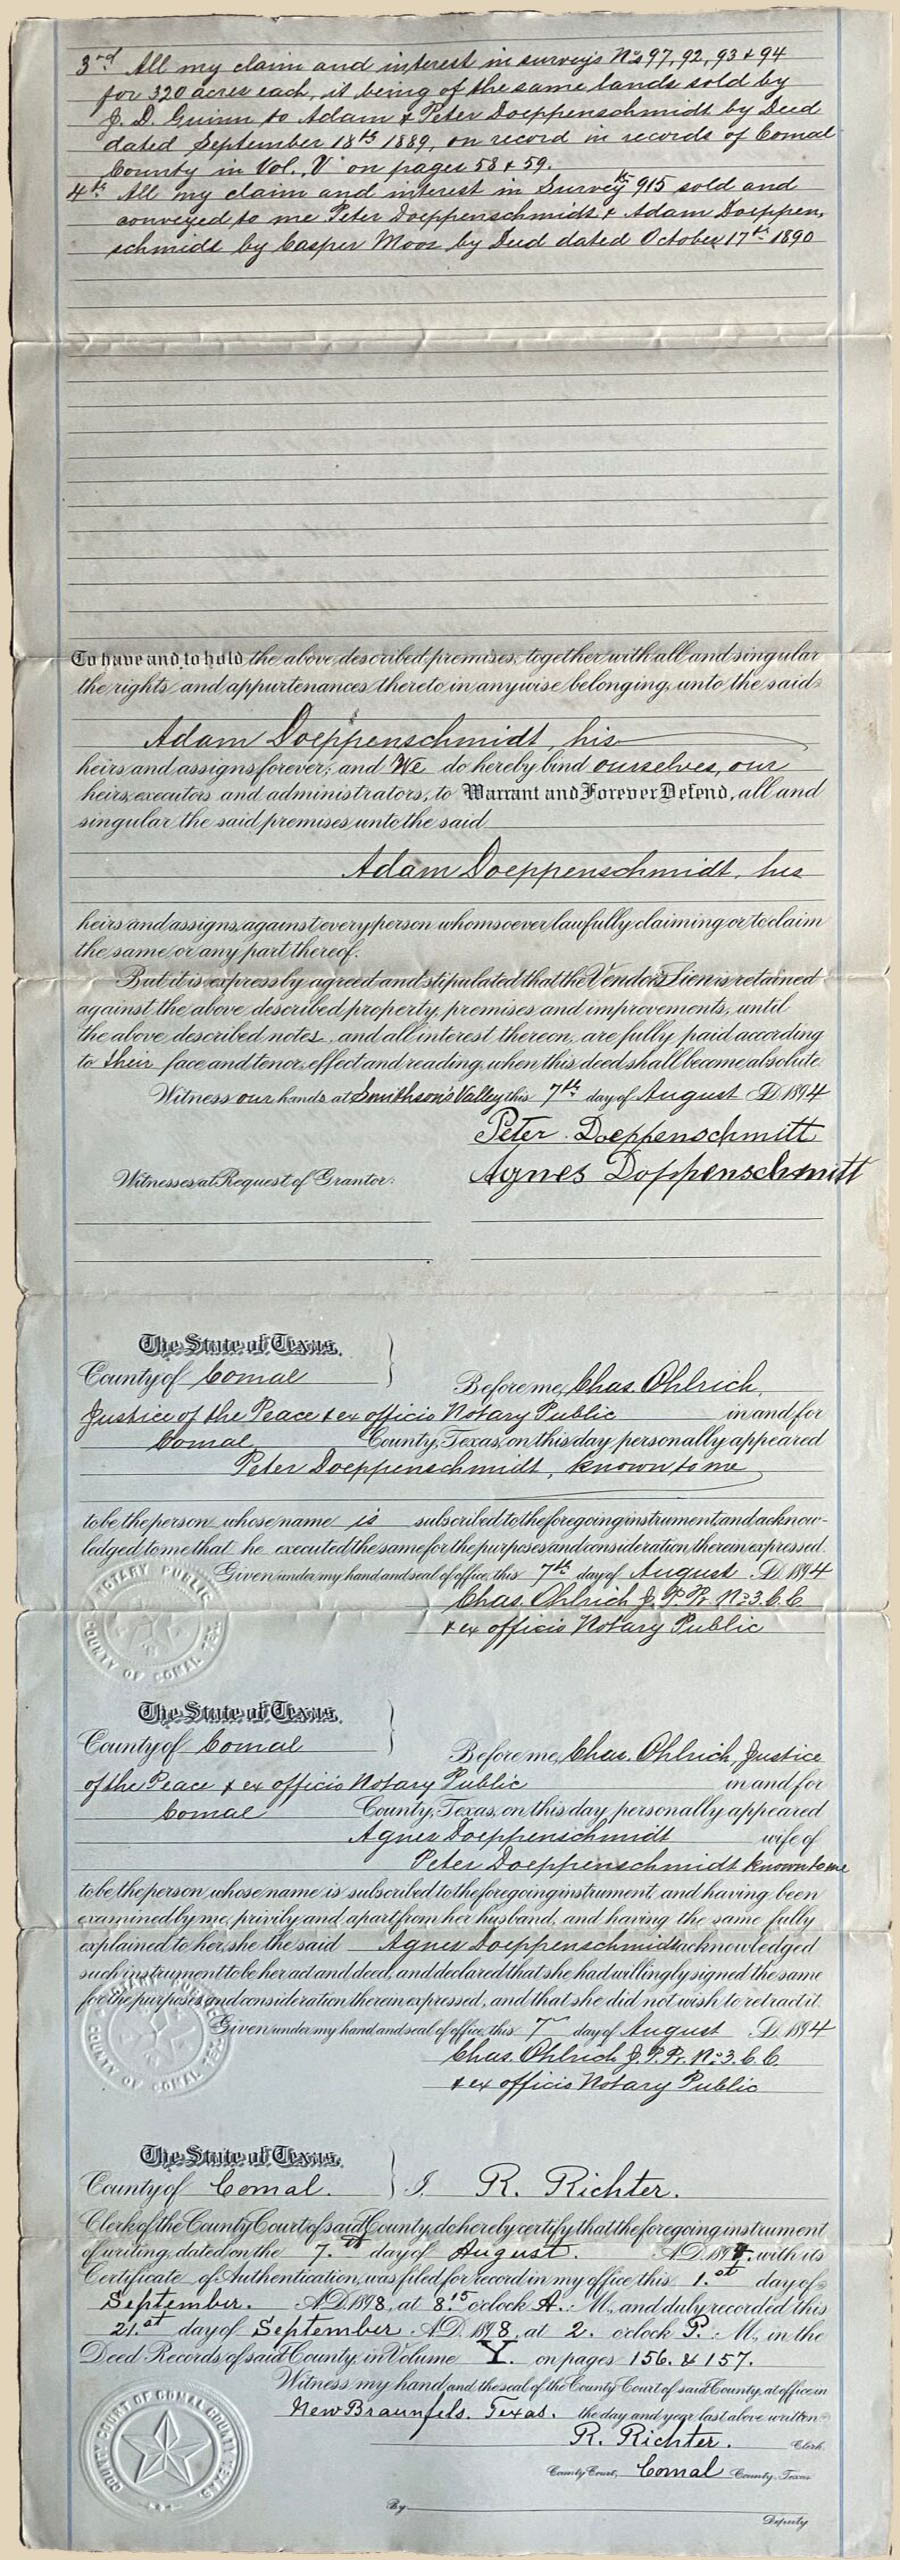 3rd. All my claim and interest in surveys Nos 97, 92, 93 & 94
for 320 acres each, it being of the same lands sold by
J. D. Guinn to Adam & Peter Doeppenschmidt by Deed
dated September 18th 1889, on record in records of Comal
County in Vol. "V" on pages 58 & 59.
4th. All my claim and interest in Survey 915 sold and
conveyed to me Peter Doeppenschmidt & Adam Doeppen,
schmidt by Casper Moos by Deed dated October 17th 1890
To have and to hold, the above described premises, together with all and singular
the rights and appurtenances thereto in anywise belonging, unto the said
Adam Doeppenschmidt, his
heirs and assigns forever; and We do hereby bind ourselves, our
heirs, executors and administrators, to Warrant and Forever Defend, all and
singular the said premises unto the said
Adam Doeppenschmidt, his
heirs and assigns, against every person whomsoever lawfully claiming or to claim
the same or any part thereof.
But it is expressly agreed and stipulated that the Vendor's Lien is retained
against the above described property, premises and improvements, until
the above described notes, and all interest thereon, are fully paid according
to their face and tenor, effect and reading, when this deed shall become absolute.
Witness our hands at Smithson's Valley this 7th day of August A.D. 1894
Peter Doeppenschmitt
Witnesses at Request of Grantor: Agnes Doppenschmitt
The State of Texas,
County of Comal Before me, Chas. Ohlrich,
Justice of the Peace & ex officio Notary Public in and for
Comal County, Texas, on this day personally appeared
Peter Doeppenschmidt, known to me
to be the person whose name is subscribed to the foregoing instrument, and acknow-
ledged to me that he executed the same for the purposes and consideration therein expressed.
Given under my hand and seal of office, this 7th day of August A.D. 1894
Chas. Ohlrich J. P. Pr. No 3. C. C.
& ex officio Notary Public
NOTARY PUBLIC
COUNTY OF COMAL TEX.
The State of Texas,
County of Comal Before me, Chas. Ohlrich, Justice
of the Peace & ex officio Notary Public in and for
Comal County, Texas, on this day personally appeared
Agnes Doeppenschmidt wife of
Peter Doeppenschmidt known to me
to be the person whose name is subscribed to the foregoing instrument, and having been
examined by me, privily and apart from her husband, and having the same fully
explained to her, she the said Agnes Doeppenschmidt acknowledged
such instrument to be her act and deed, and declared that she had willingly signed the same
for the purposes and consideration therein expressed, and that she did not wish to retract it.
Given under my hand and seal of office, this 7 day of August A.D. 1894
Chas. Ohlrich J. P. Pr. No. 3. C. C.
& ex officio Notary Public
NOTARY PUBLIC
COUNTY OF COMAL TEX.
The State of Texas,
County of Comal. I, R. Richter.
Clerk of the County Court of said County, do hereby certify that the foregoing instrument
of writing, dated on the 7.th day of August. A.D. 1894. with its
Certificate of Authentication, was filed for record in my office this 1.st day of
September. A.D. 1898, at 8.15 o'clock A. M., and duly recorded this
21.st day of September A.D. 1898, at 2. o'clock P. M., in the
Deed Records of said County, in Volume Y. on pages 156. & 157.
Witness my hand and the seal of the County Court of said County, at office in
New Braunfels. Texas. the day and year last above written.
R. Richter. Clerk
County Court, Comal County, Texas
By Deputy
COUNTY COURT OF COMAL COUNTY TEXAS